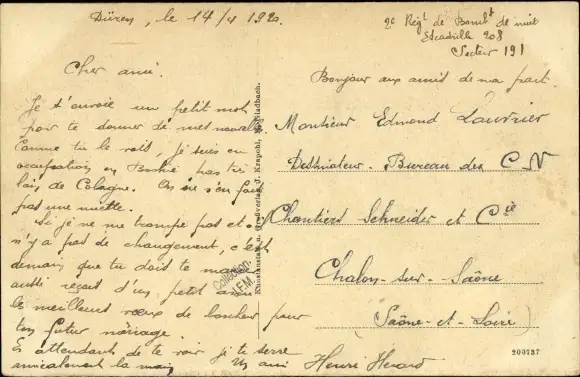 Düren, le 14/4 1920
2e Régt de Bombt de nuit
Escadrille 208
Secteur 191
Cher ami.
Je t'envoie un petit mot
pour te donner de mes nouvelles
Comme tu le vois, je suis en
occupation en Bochie pas très
loin de Cologne. On s'en fait
pas une miette.
Si je ne me trompe pas et
n'y a pas de changement, c'est
demain que tu dois te
aussi reçoit d'un petit
les meilleurs vœux de bonheur pour
ton futur ménage.
En attendant de te voir je te serre
amicalement la main
Un ami Henri
Bonjour aux amis de ma part.
Monsieur Edmond
Dessinateur. Bureau des C N
Chantiers Schneider et Cie
Chalon-sur-Saône
(Saône-et-Loire)
Kunstanstalt u. Großverlag J. Krapohl, M.Gladbach.
Collection
J.F.M.
200737